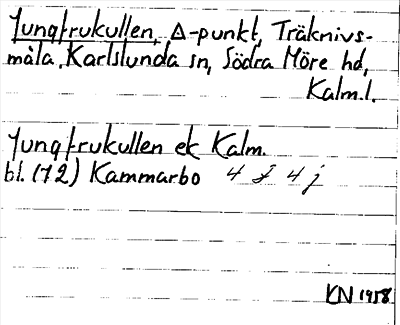 Jungfrukullen, Δ-punkt, Träknivs-
måla, Karlslunda sn, Södra Möre hd,
Kalm.l.
Jungfrukullen ek Kalm.
bl. (72) Kammarbo 4 J 4 j
KN 1958